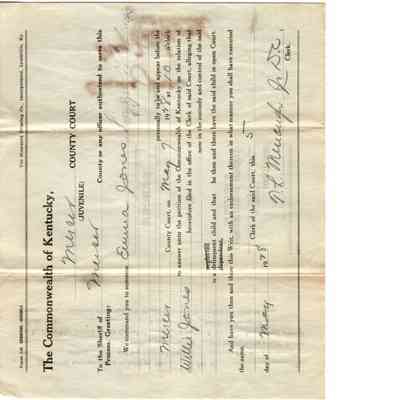 The Commonwealth of Kentucky,
Mercer COUNTY COURT
(JUVENILE)
To the Sheriff of Mercer County or any officer authorized to serve this
Process, Greeting:
We command you to summon Emma Jones
personally to be and appear before the
Mercer County Court, on May 7 19 at 10 o'clock
to answer unto the petition of the Commonwealth of Kentucky on the relation of
heretofore filed in the office of the Clerk of said Court, alleging that
Willie Jones now in the custody and control of the said
neglected
is a delinquent child and that he then and there have the said child in open Court.
dependent,
And have you then and there this Writ, with an endorsement thereon in what manner you shall have executed
the same.
Clerk of the said Court, this 5
day of May 19
Clerk.